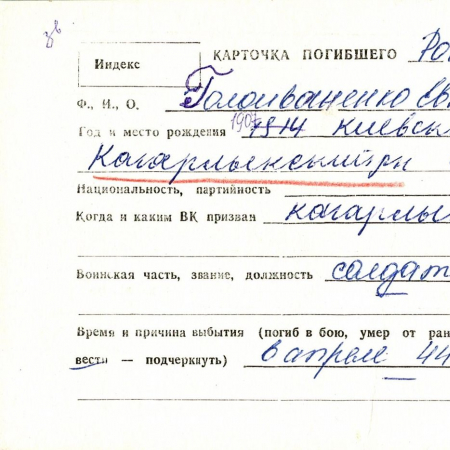 КАРТОЧКА ПОГИБШЕГО
Индекс
Ф., И., О. Голованенко
Год и место рождения 1914 Киевск
Кагарлыкский рн
Национальность, партийность
Когда и каким ВК призван Кагарлы
Воинская часть, звание, должность солдат
Время и причина выбытия (погиб в бою, умер от ран
вести — подчеркнуть) в апреле 44